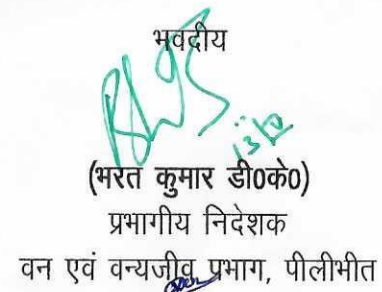 भवदीय
(भरत कुमार डी0के0)
प्रभागीय निदेशक
वन एवं वन्यजीव प्रभाग, पीलीभीत